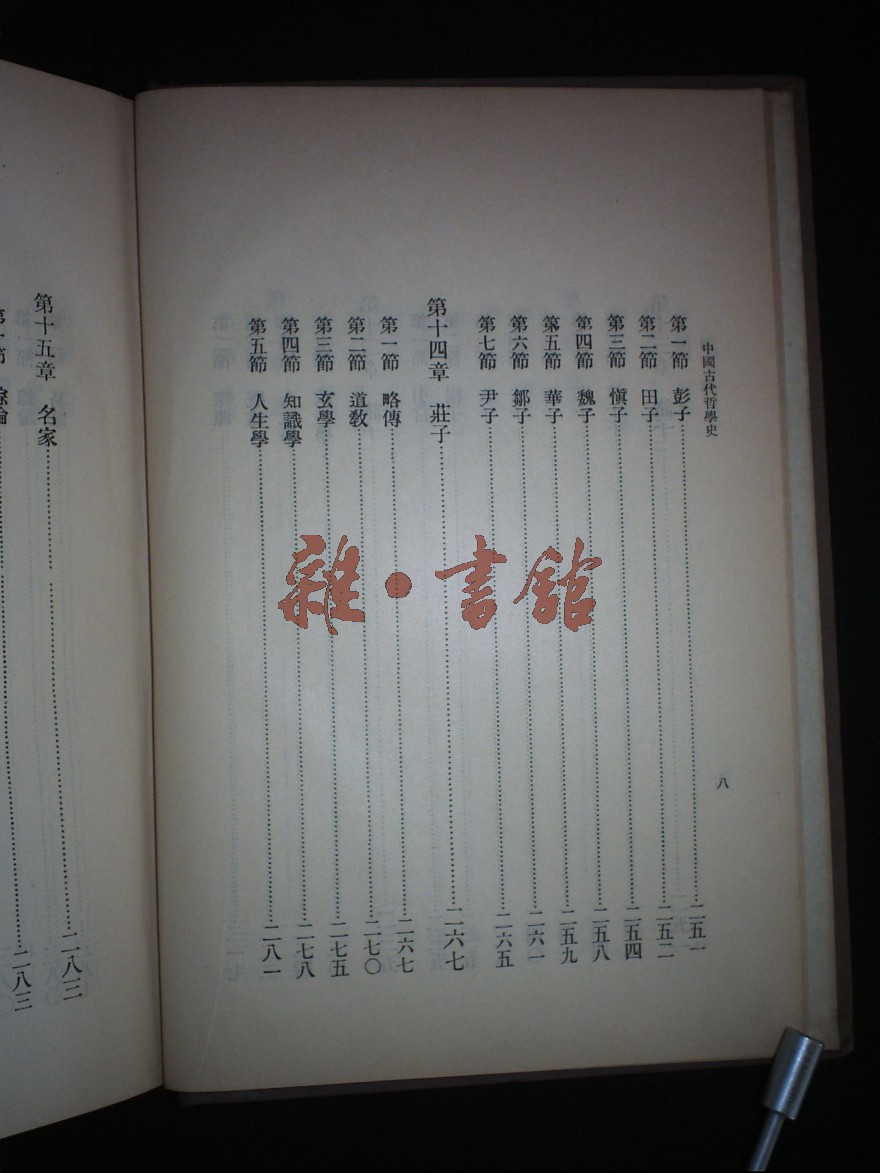 中國古代哲學史
八
第一節 彭子…………二五一
第二節 田子…………二五二
第三節 愼子…………二五四
第四節 魏子…………二五八
第五節 華子…………二五九
第六節 鄒子…………二六一
第七節 尹子…………二六五
第十四章 莊子…………二六七
第一節 略傳…………二六七
第二節 道教…………二七〇
第三節 玄學…………二七五
第四節 知識學…………二七八
第五節 人生學…………二八一
第十五章 名家…………二八三
第一節 綜論…………二八三
雜·書館